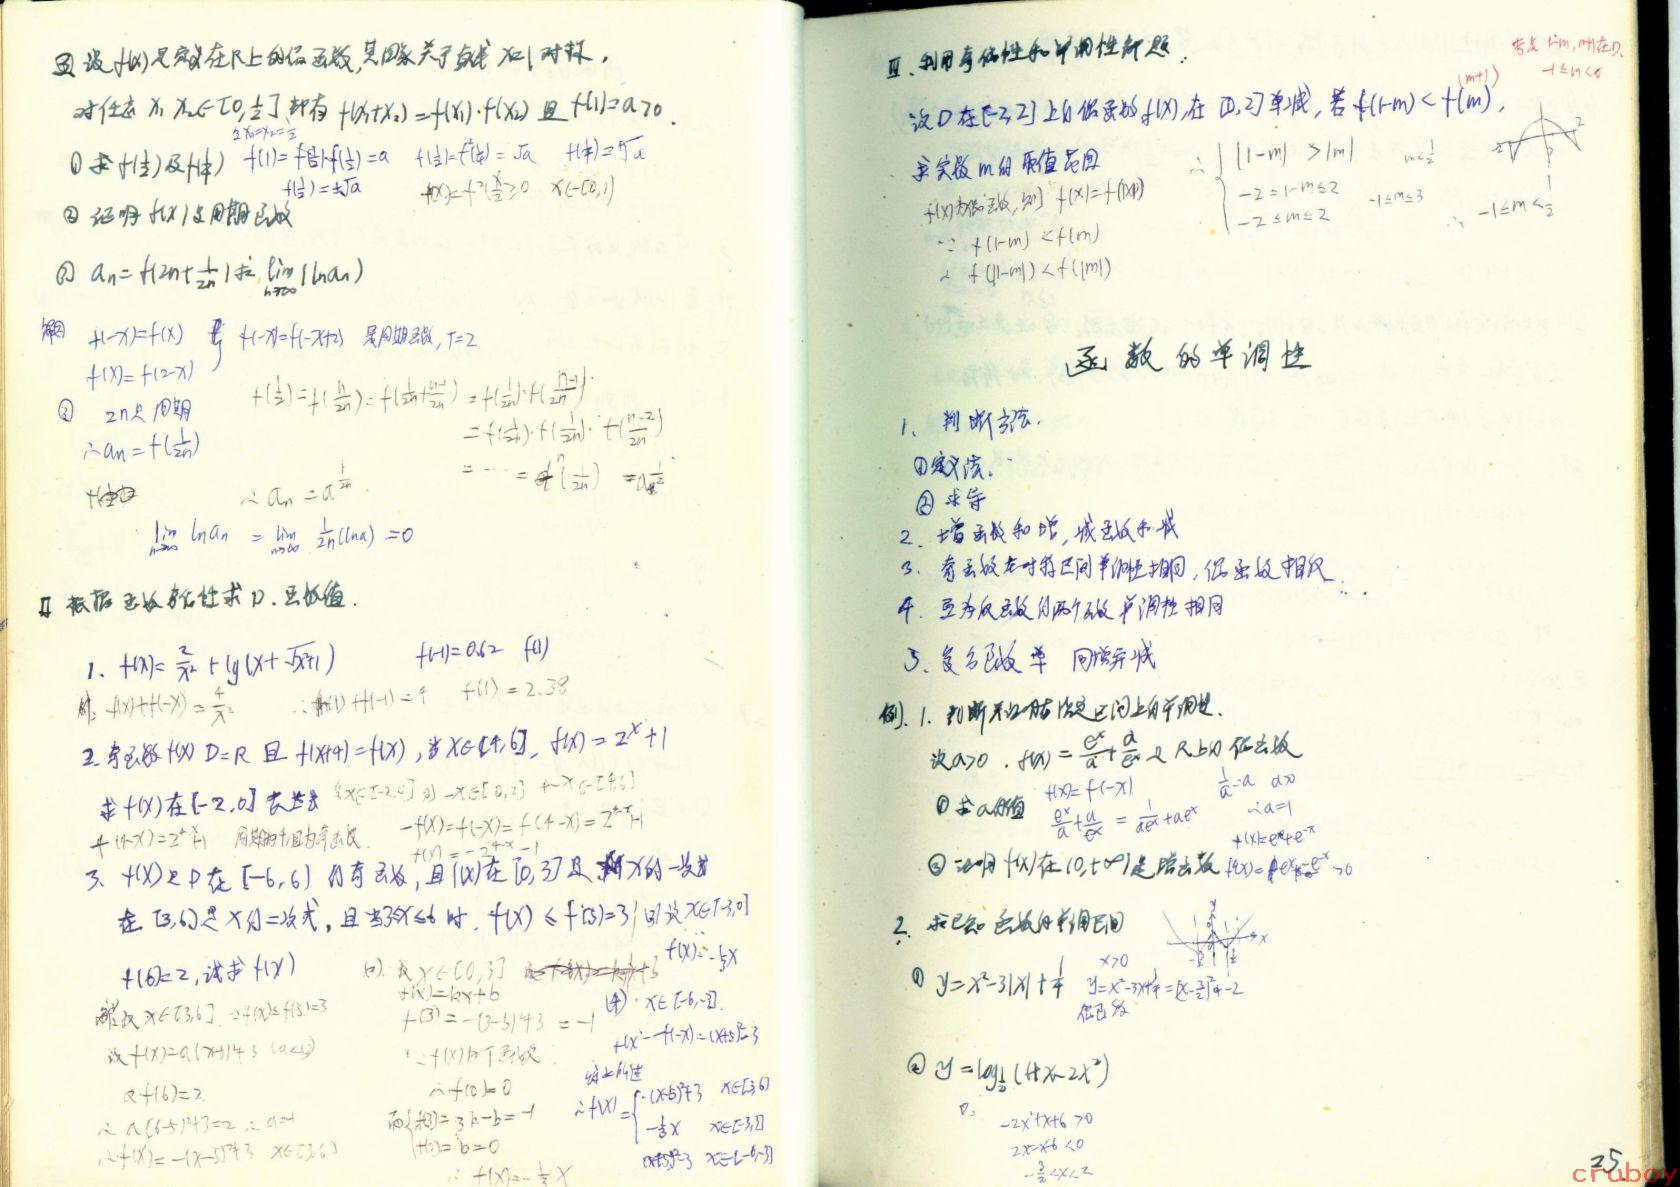 设f(x)是定义在R上的偶函数,其图象关于直线x=1对称,
对任意x₁ x₂∈[0,½]都有f(x₁+x₂)=f(x₁)·f(x₂)且f(1)=a>0.
①求f(½)及f(¼) f(1)=f(½)·f(½)=a f(½)=f²(¼)=√a
f(½)=±√a f(x)=f²(x/2)≥0 x∈[0,1]
②证明f(x)是周期函数
aₙ=f(2n+1/2n)求 lim(n→∞)(lnaₙ)
解 f(-x)=f(x) f(-x)=f(-x+2) 是周期函数,T=2
f(x)=f(2-x)
f(½)=f(n/2n)=f(1/2n+(n-1)/2n)=f(1/2n)·f((n-1)/2n)
③ 2n是周期
=f(1/2n)·f(1/2n)·f((n-2)/2n)
∴aₙ=f(1/2n)
=…=fⁿ(1/2n)=a^½
∴aₙ=a^(1/2n)
lim(n→∞) lnaₙ = lim(n→∞) 1/2n(lna)=0
Ⅱ 根据函数奇偶性求D.函数值.
1. f(x)=2/x²+lg(x+√x²+1) f(-1)=1.62 f(1)
解: f(x)+f(-x)=4/x² ∴f(1)+f(-1)=4 f(1)=2.38
2.奇函数f(x) D=R 且 f(x+4)=f(x),当x∈[4,6], f(x)=2ˣ+1
求f(x)在[-2,0]表达式 设x∈[-2,0] 则-x∈[0,2] 4-x∈[4,6]
f(4-x)=2⁴⁻ˣ+1 周期为4且为奇函数 -f(x)=f(-x)=f(4-x)=2⁴⁻ˣ+1
f(x)=-2⁴⁻ˣ-1
3. f(x)是D在[-6,6]的奇函数,且f(x)在[0,3]是x的一次式
在[3,6]是x的二次式,且当3≤x≤6时. f(x)≤f(5)=3
f(6)=2,试求f(x)
设x∈[-3,0]
f(x)=-⅓x
解:设x∈[3,6]. ∵f(x)≤f(5)=3
设f(x)=a(x-5)²+3 (a<0)
又f(6)=2
∴a(6-5)²+3=2 ∴a=-1
∴f(x)=-(x-5)²+3 x∈[3,6]
设x∈[0,3]
f(x)=kx+b
f(3)=-(3-5)²+3=-1
∵f(x)为奇函数
∴f(0)=0
而 f(3)=3k+b=-1
f(0)=b=0
∴f(x)=-⅓x
(4). x∈[-6,-3].
f(x)=-f(-x)=(x+5)²-3
综上所述
∴f(x)= -(x-5)²+3 x∈[3,6]
-⅓x x∈[-3,3]
(x+5)²-3 x∈[-6,-3]
Ⅲ.利用奇偶性和单调性解题.
考虑1-m,m均在D
-1≤m<½
设D在[-2,2]上的偶函数f(x),在[0,2]单减,若f(1-m)<f(m),
(m+1)
求实数m的取值范围
∴ |1-m|>|m| m<½
-2≤1-m≤2 -1≤m≤3
-2≤m≤2
∴ -1≤m<½
f(x)为偶函数,则f(x)=f(|x|)
∵ f(1-m)<f(m)
∴ f(|1-m|)<f(|m|)
函数的单调性
1. 判断方法.
①定义法.
②求导
2. 增函数和增,减函数和减
3. 奇函数在对称区间单调性相同,偶函数相反
4. 互为反函数的两个函数单调性相同
5. 复合函数单 同增异减
例. 1. 判断并证明在给定区间上的单调性.
设a>0. f(x)=eˣ/a+a/eˣ是R上的偶函数
①求a的值 f(x)=f(-x) 1/a=a a>0
eˣ/a+a/eˣ=1/aeˣ+aeˣ ∴a=1
f(x)=eˣ+e⁻ˣ
②证明f(x)在(0,+∞)是增函数 f'(x)=eˣ-e⁻ˣ>0
2. 求已知函数的单调区间
x>0
① y=x²-3|x|+¼ y=x²-3x+¼=(x-3/2)²-2
偶函数
② y=log½(6+x-2x²)
D:
-2x²+x+6>0
2x²-x-6<0
-3/2<x<2
25
cruboy